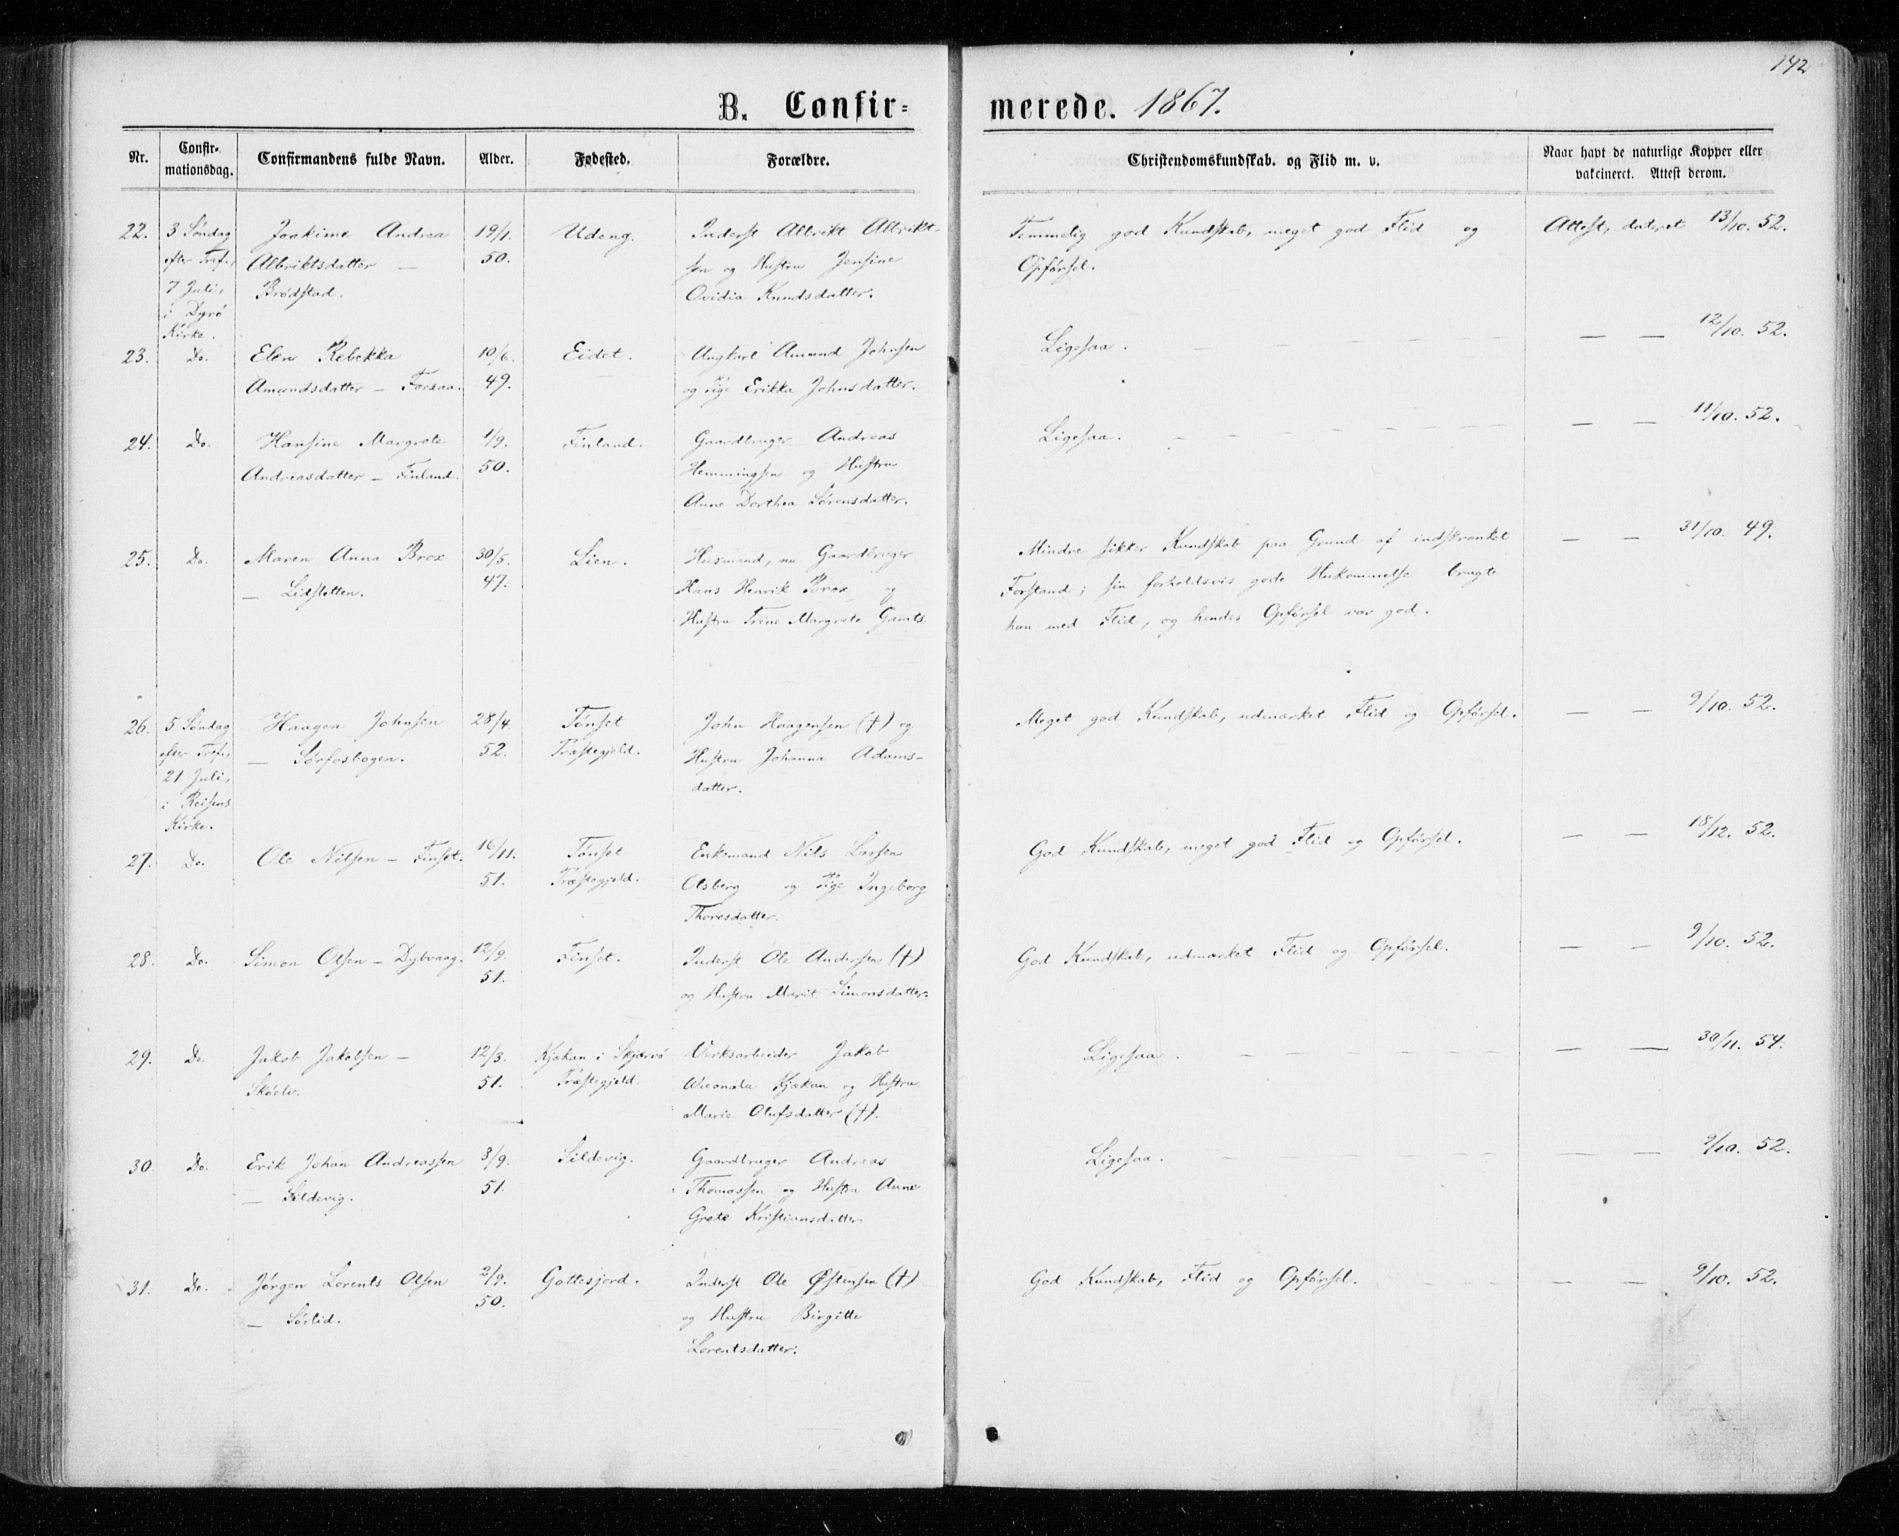 142
B. Confir=
merede. 1867.
Nr.
Confir-
mationsdag.
Confirmandens fulde Navn.
Alder.
Fødested.
Forældre.
Christendomskundskab. og Flid m. v.
Naar havt de naturlige Kopper eller
vakcineret. Attest derom.
22. 3 Søndag Joakime Andrea 19/1. Udeng. Inderst Albrikt Albrikt- Temmelig god Kundskab, meget god Flid og Attest, dateret 13/10. 52.
efter Tref., Albriktsdatter — 50. sen og Hustru Jensine Opførsel.
7 Juli, Brødstad. Ovidia Knudsdatter.
i Dyrø
Kirke.
23. Do. Elen Rebekka 10/6. Eidet. Ungkarl Amund Johnsen Ligesaa. — — 12/10. 52.
Amundsdatter — Forsaa. 49. og Pige Erikka Johnsdatter.
24. Do. Hansine Margrete 1/9. Finland. Gaardbruger Andreas Ligesaa. — — 11/10. 52.
Andreasdatter — Finland. 50. Hemmingsen og Hustru
Anne Dorthea Sørensdatter.
25. Do. Maren Anna Brox 30/5. Lien. Husmand, nu Gaardbruger Mindre sikker Kundskab paa Grund af indskrænket — — 31/10. 49.
— Lidsletten. 47. Hans Henrik Brox og Forstand; sin forholdsvis gode Hukommelse brugte
Hustru Trine Margrete Gamts. hun med Flid, og hendes Opførsel var god.
26. 5 Søndag Haagen Johnsen 28/4. Tønset John Haagensen (†) og Meget god Kundskab, udmærket Flid og Opførsel. — — 9/10. 52.
efter Tref., — Sørfosbogen. 52. Præstegjeld. Hustru Johanna Adams-
21 Juli, datter.
i Reisens
Kirke.
27. Do. Ole Nilsen — Finset. 16/11. Tønset Enkemand Nils Larsen God Kundskab, meget god Flid og Opførsel. — — 18/12. 52.
51. Præstegjeld. Olsberg og Pige Ingeborg
Thoresdatter.
28. Do. Simon Olsen — Dybvaag. 12/9. Finset. Inderst Ole Andersen (†) God Kundskab, udmærket Flid og Opførsel. — — 9/10. 52.
51. og Hustru Marit Simonsdatter.
29. Do. Jakob Jakobsen — 12/3. Kjækan i Skjærvø Verksarbeider Jakob Ligesaa. — — 30/11. 54.
Skøelv. 51. Præstegjeld. Kjækan og Hustru
Marie Olufsdatter (†).
30. Do. Erik Johan Andreassen 8/9. Sildevig. Gaardbruger Andreas Ligesaa. — — 9/10. 52.
— Sildevig. 51. Thomassen og Hustru Anne
Grete Kristiansdatter.
31. Do. Jørgen Lorents Olsen 2/9. Gottesjord. Inderst Ole Østensen (†) God Kundskab, Flid og Opførsel. — — 9/10. 52.
— Sørlid. 50. og Hustru Birgitte
Lorentsdatter.